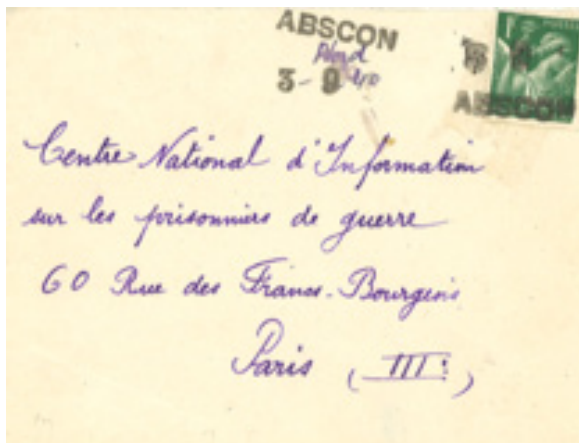 ABSCON
Nord
3-9 40
ABSCON
Centre National d'Information
sur les prisonniers de guerre
60 Rue des Francs-Bourgeois
Paris (III:)